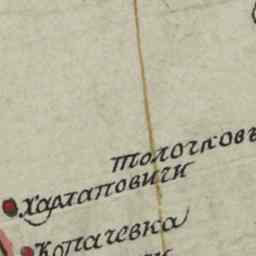 толочковъ
Харлаповичи
Копачевка